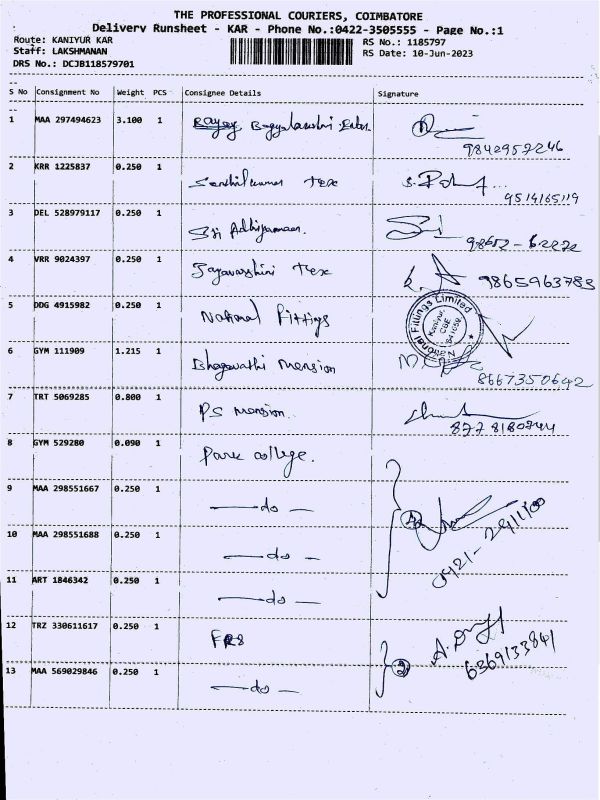 THE PROFESSIONAL COURIERS, COIMBATORE
Delivery Runsheet - KAR - Phone No.:0422-3505555 - Page No.:1
Route: KANIYUR KAR
RS No.: 1185797
Staff: LAKSHMANAN
RS Date: 10-Jun-2023
DRS No.: DCJB118579701
S No Consignment No Weight PCS Consignee Details Signature
1 MAA 297494623 3.100 1
9842957246
2 KRR 1225837 0.250 1 Senthilkumar Tex
9514165119
3 DEL 528979117 0.250 1 Sri Adhiyamaan
4 VRR 9024397 0.250 1 Jayavarshini Tex 9865963783
5 DDG 4915982 0.250 1 National Fittings
National Fittings Limited
Kaniyur, CBE 641659
6 GYM 111909 1.215 1 Bhagavathi Mension
8667350642
7 TRT 5069285 0.800 1 PS Mension.
8778180744
8 GYM 529280 0.090 1 Park college.
9 MAA 298551667 0.250 1 —do—
0421-2911100
10 MAA 298551688 0.250 1 —do—
11 ART 1846342 0.250 1 —do—
12 TRZ 330611617 0.250 1
6369133841
13 MAA 569029846 0.250 1 —do— 2